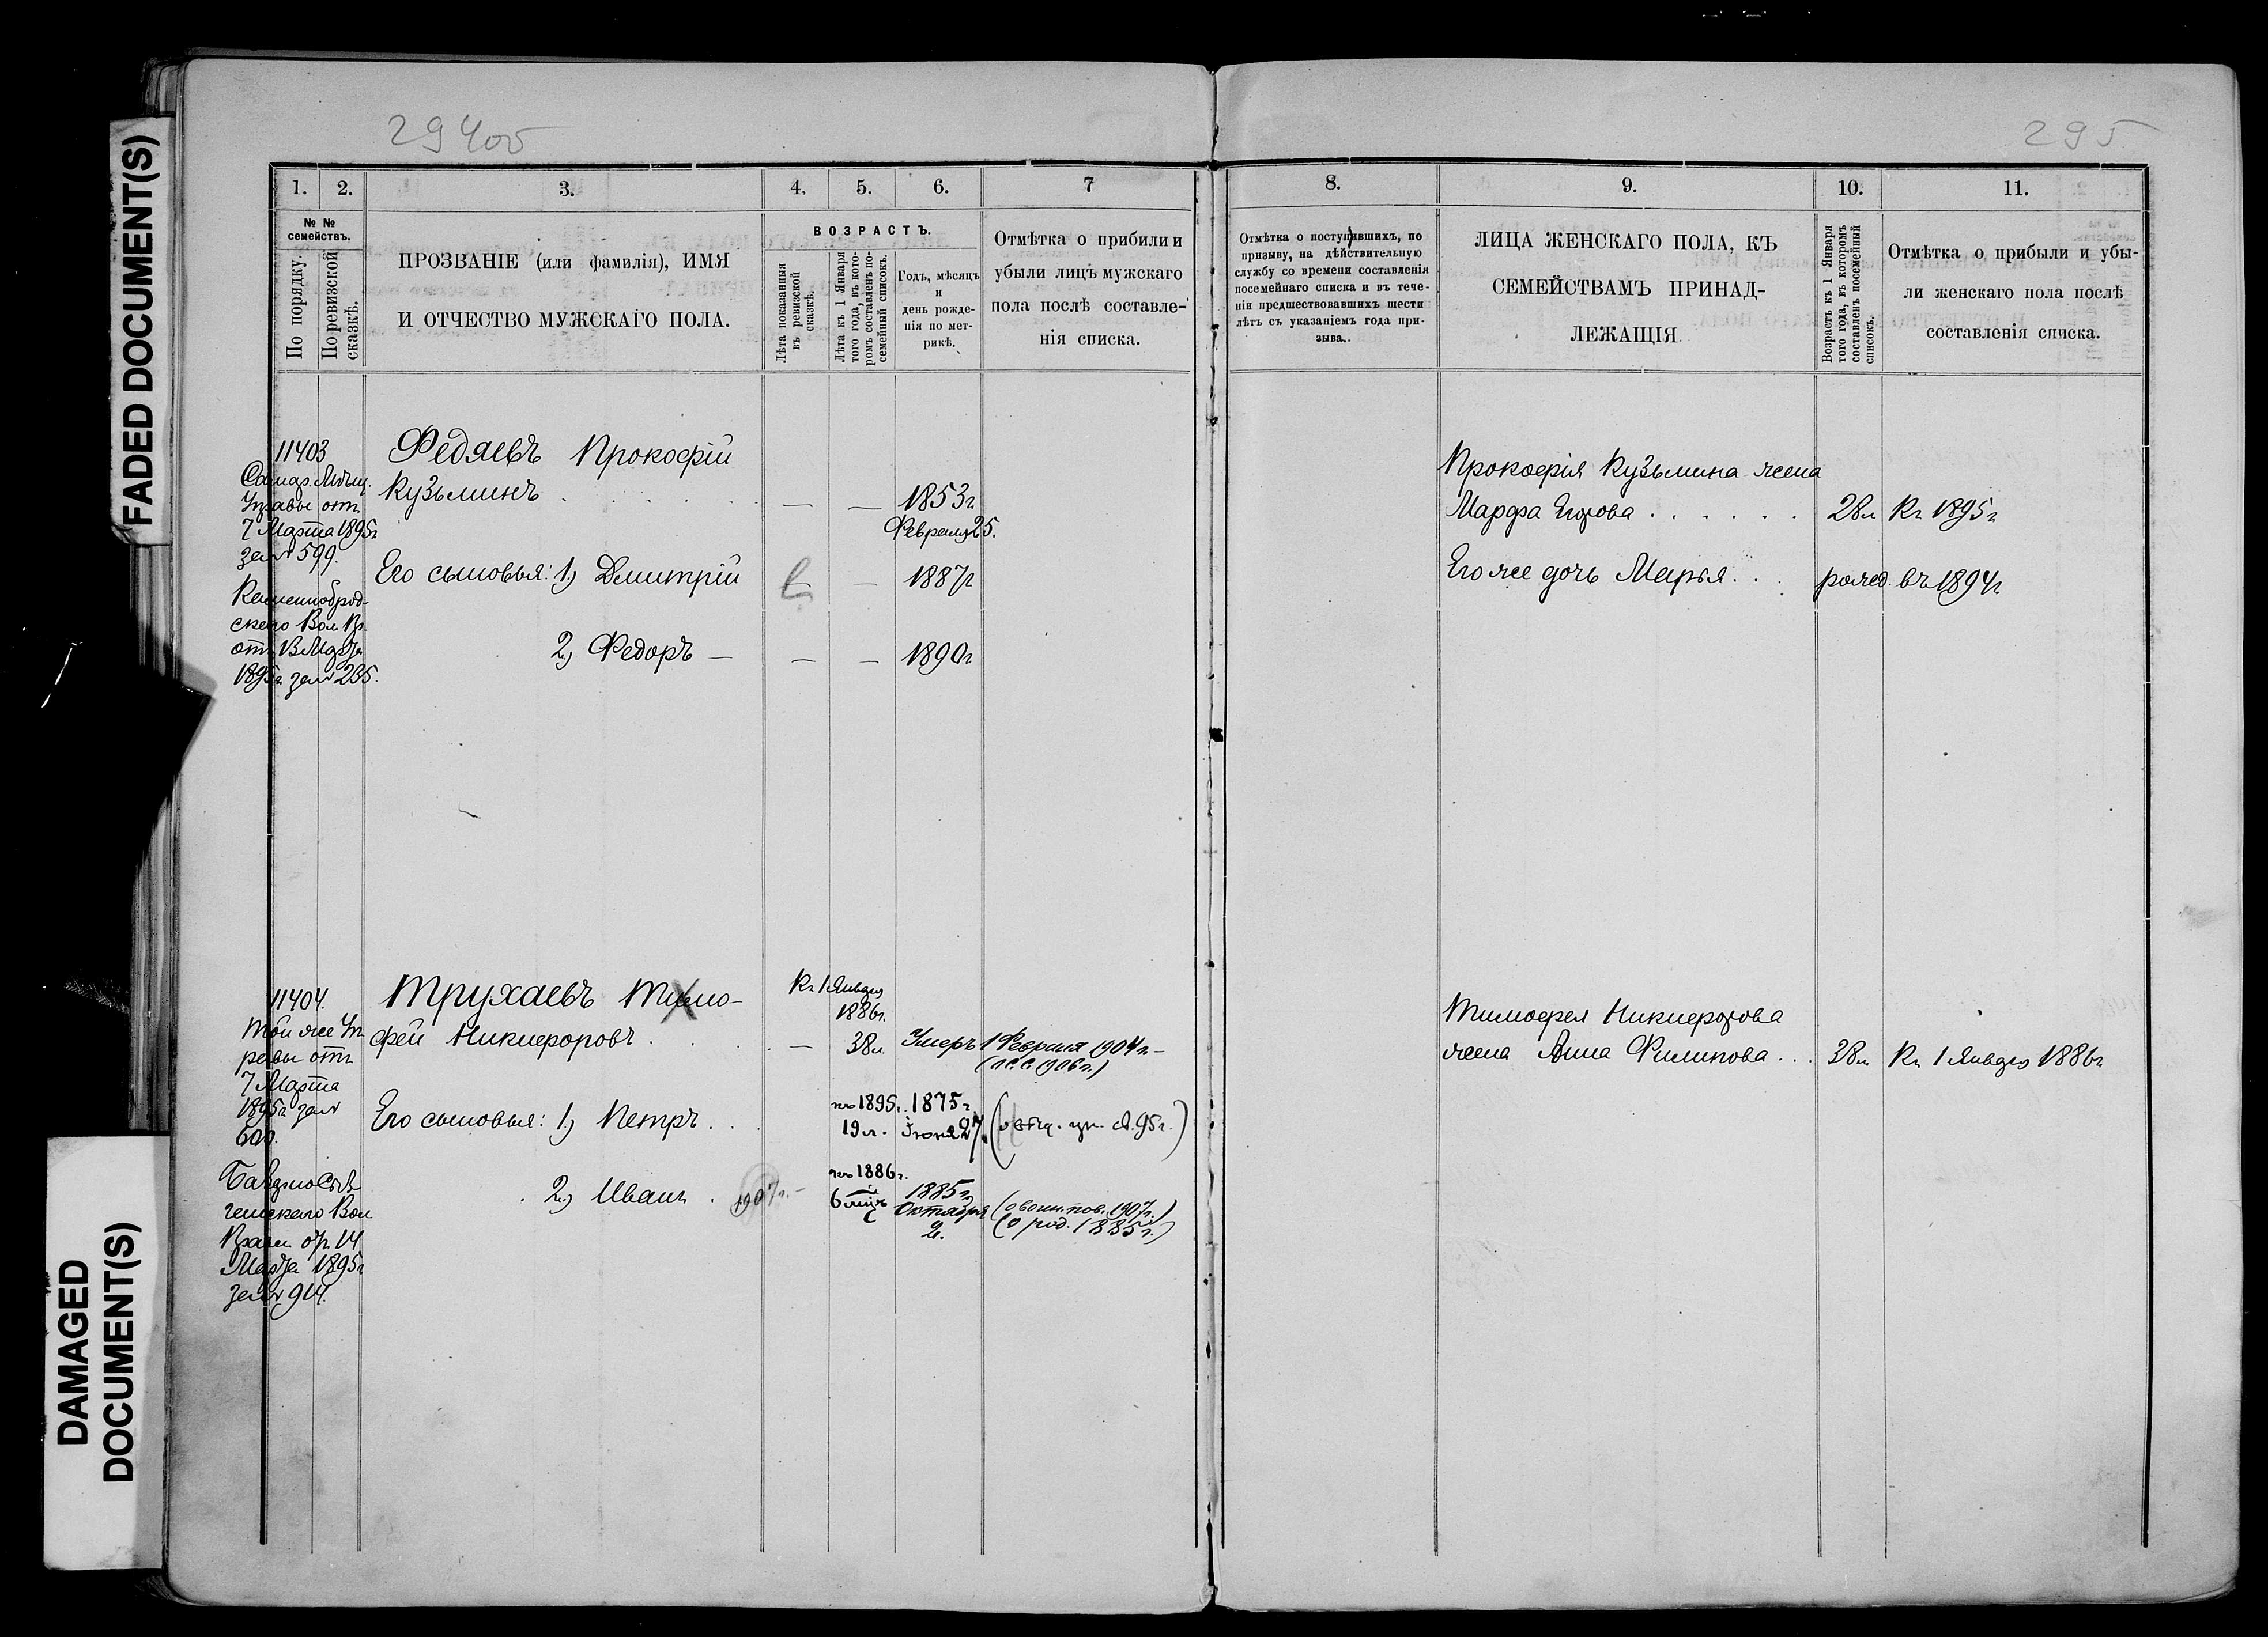 FADED DOCUMENT(S)
DAMAGED
DOCUMENT(S)
295
1. 2. 3. 4. 5. 6. 7
№ №
семействъ.
По порядку.
По ревизской
сказкѣ.
ПРОЗВАНІЕ (или фамилія), ИМЯ
И ОТЧЕСТВО МУЖСКАГО ПОЛА.
ВОЗРАСТЪ.
Лѣта показанныя
въ ревизской
сказкѣ.
Лѣта къ 1 Января
того года, въ кото-
ромъ составленъ по-
семейный списокъ.
Годъ, мѣсяцъ
и
день рожде-
нія по мет-
рикѣ.
Отмѣтка о прибыли и
убыли лицъ мужскаго
пола послѣ составле-
нія списка.
11403
Самар. Мѣщ.
Управы отъ
7 Марта 1895г
за № 599.
Каменноброд-
скаго Вол Пр.
отъ 13 Марта
1895г. за № 235.
Федяевъ Прокофій
Кузьминъ . . . . — — 1853г.
Февраля 25.
Его сыновья: 1) Дмитрій — — 1887г
2) Федоръ — — — 1890г
11404.
Той же Уп
равы отъ
7 Марта
1895г за №
600.
Вол
Правл. от 14
Марта 1895г
за № 914.
Трухаевъ Тимо-
фей Никифоровъ . . . —
Къ 1 Января
1886г.
38л. Умеръ 1 Февраля 1904г. —
Его сыновья: 1) Петръ . .
1895г. 1875г
19 л. Іюня 27.
2) Иванъ . 1907г. —
1886г.
6 мцъ 1885г.
Октября
2.
(о воин. пов. 1907г.)
(о род. 1885г.)
8. 9. 10. 11.
Отмѣтка о поступившихъ, по
призыву, на дѣйствительную
службу со времени составленія
посемейнаго списка и въ тече-
ніи предшествовавшихъ шести
лѣтъ съ указаніемъ года при-
зыва.
ЛИЦА ЖЕНСКАГО ПОЛА, КЪ
СЕМЕЙСТВАМЪ ПРИНАД-
ЛЕЖАЩІЯ.
Возрастъ къ 1 Января
того года, въ которомъ
составленъ посемейный
списокъ.
Отмѣтка о прибыли и убы-
ли женскаго пола послѣ
составленія списка.
Прокофія Кузьмина жена
Марфа Егорова . . . . . . 28л Къ 1895г
Его же дочь Марья . . . рожд. въ 1894г
Тимофея Никифорова
жена Анна Филипова . . . 38л Къ 1 Января 1886г